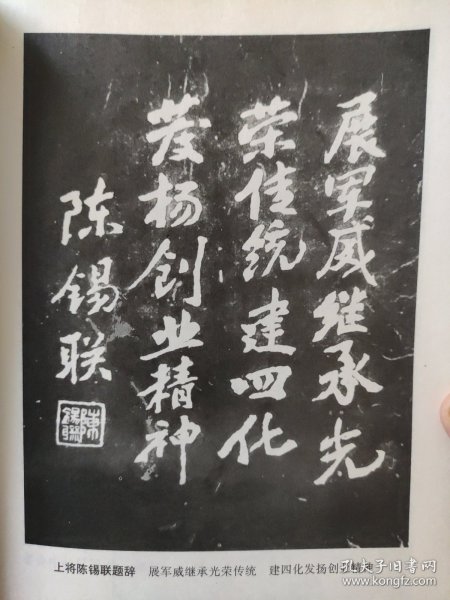 展军威继承光
荣传统建四化
发扬创业精神
陈锡联
陳錫聯
上将陈锡联题辞 展军威继承光荣传统 建四化发扬创业精神
孔夫子旧书网
kongfz.com